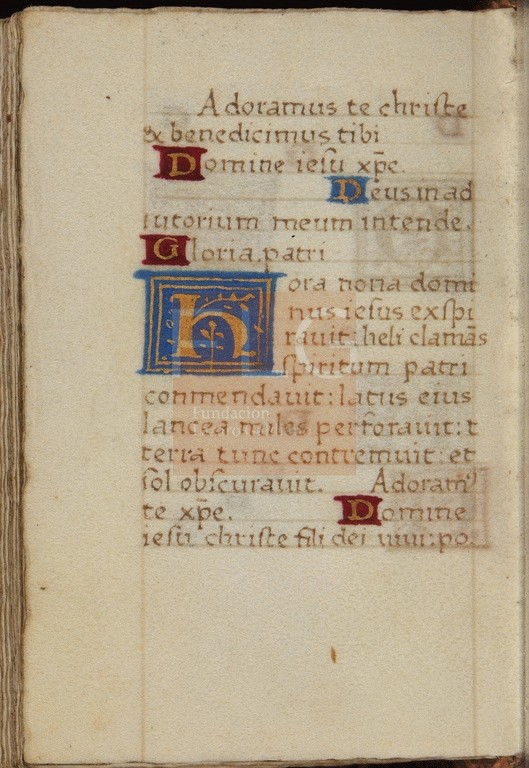 Adoramus te christe
& benedicimus tibi
Domine iesu xp̄e.
Deus in ad
iutorium meum intende.
Gloria patri
Hora nona domi
nus iesus exspi
rauit: heli clamās
spiritum patri
commendauit: latus eius
lancea miles perforauit: t
terra tunc contremuit: et
sol obscurauit. Adoramꝰ
te xp̄e. Domine
iesu christe fili dei uiui: po.
Fundación